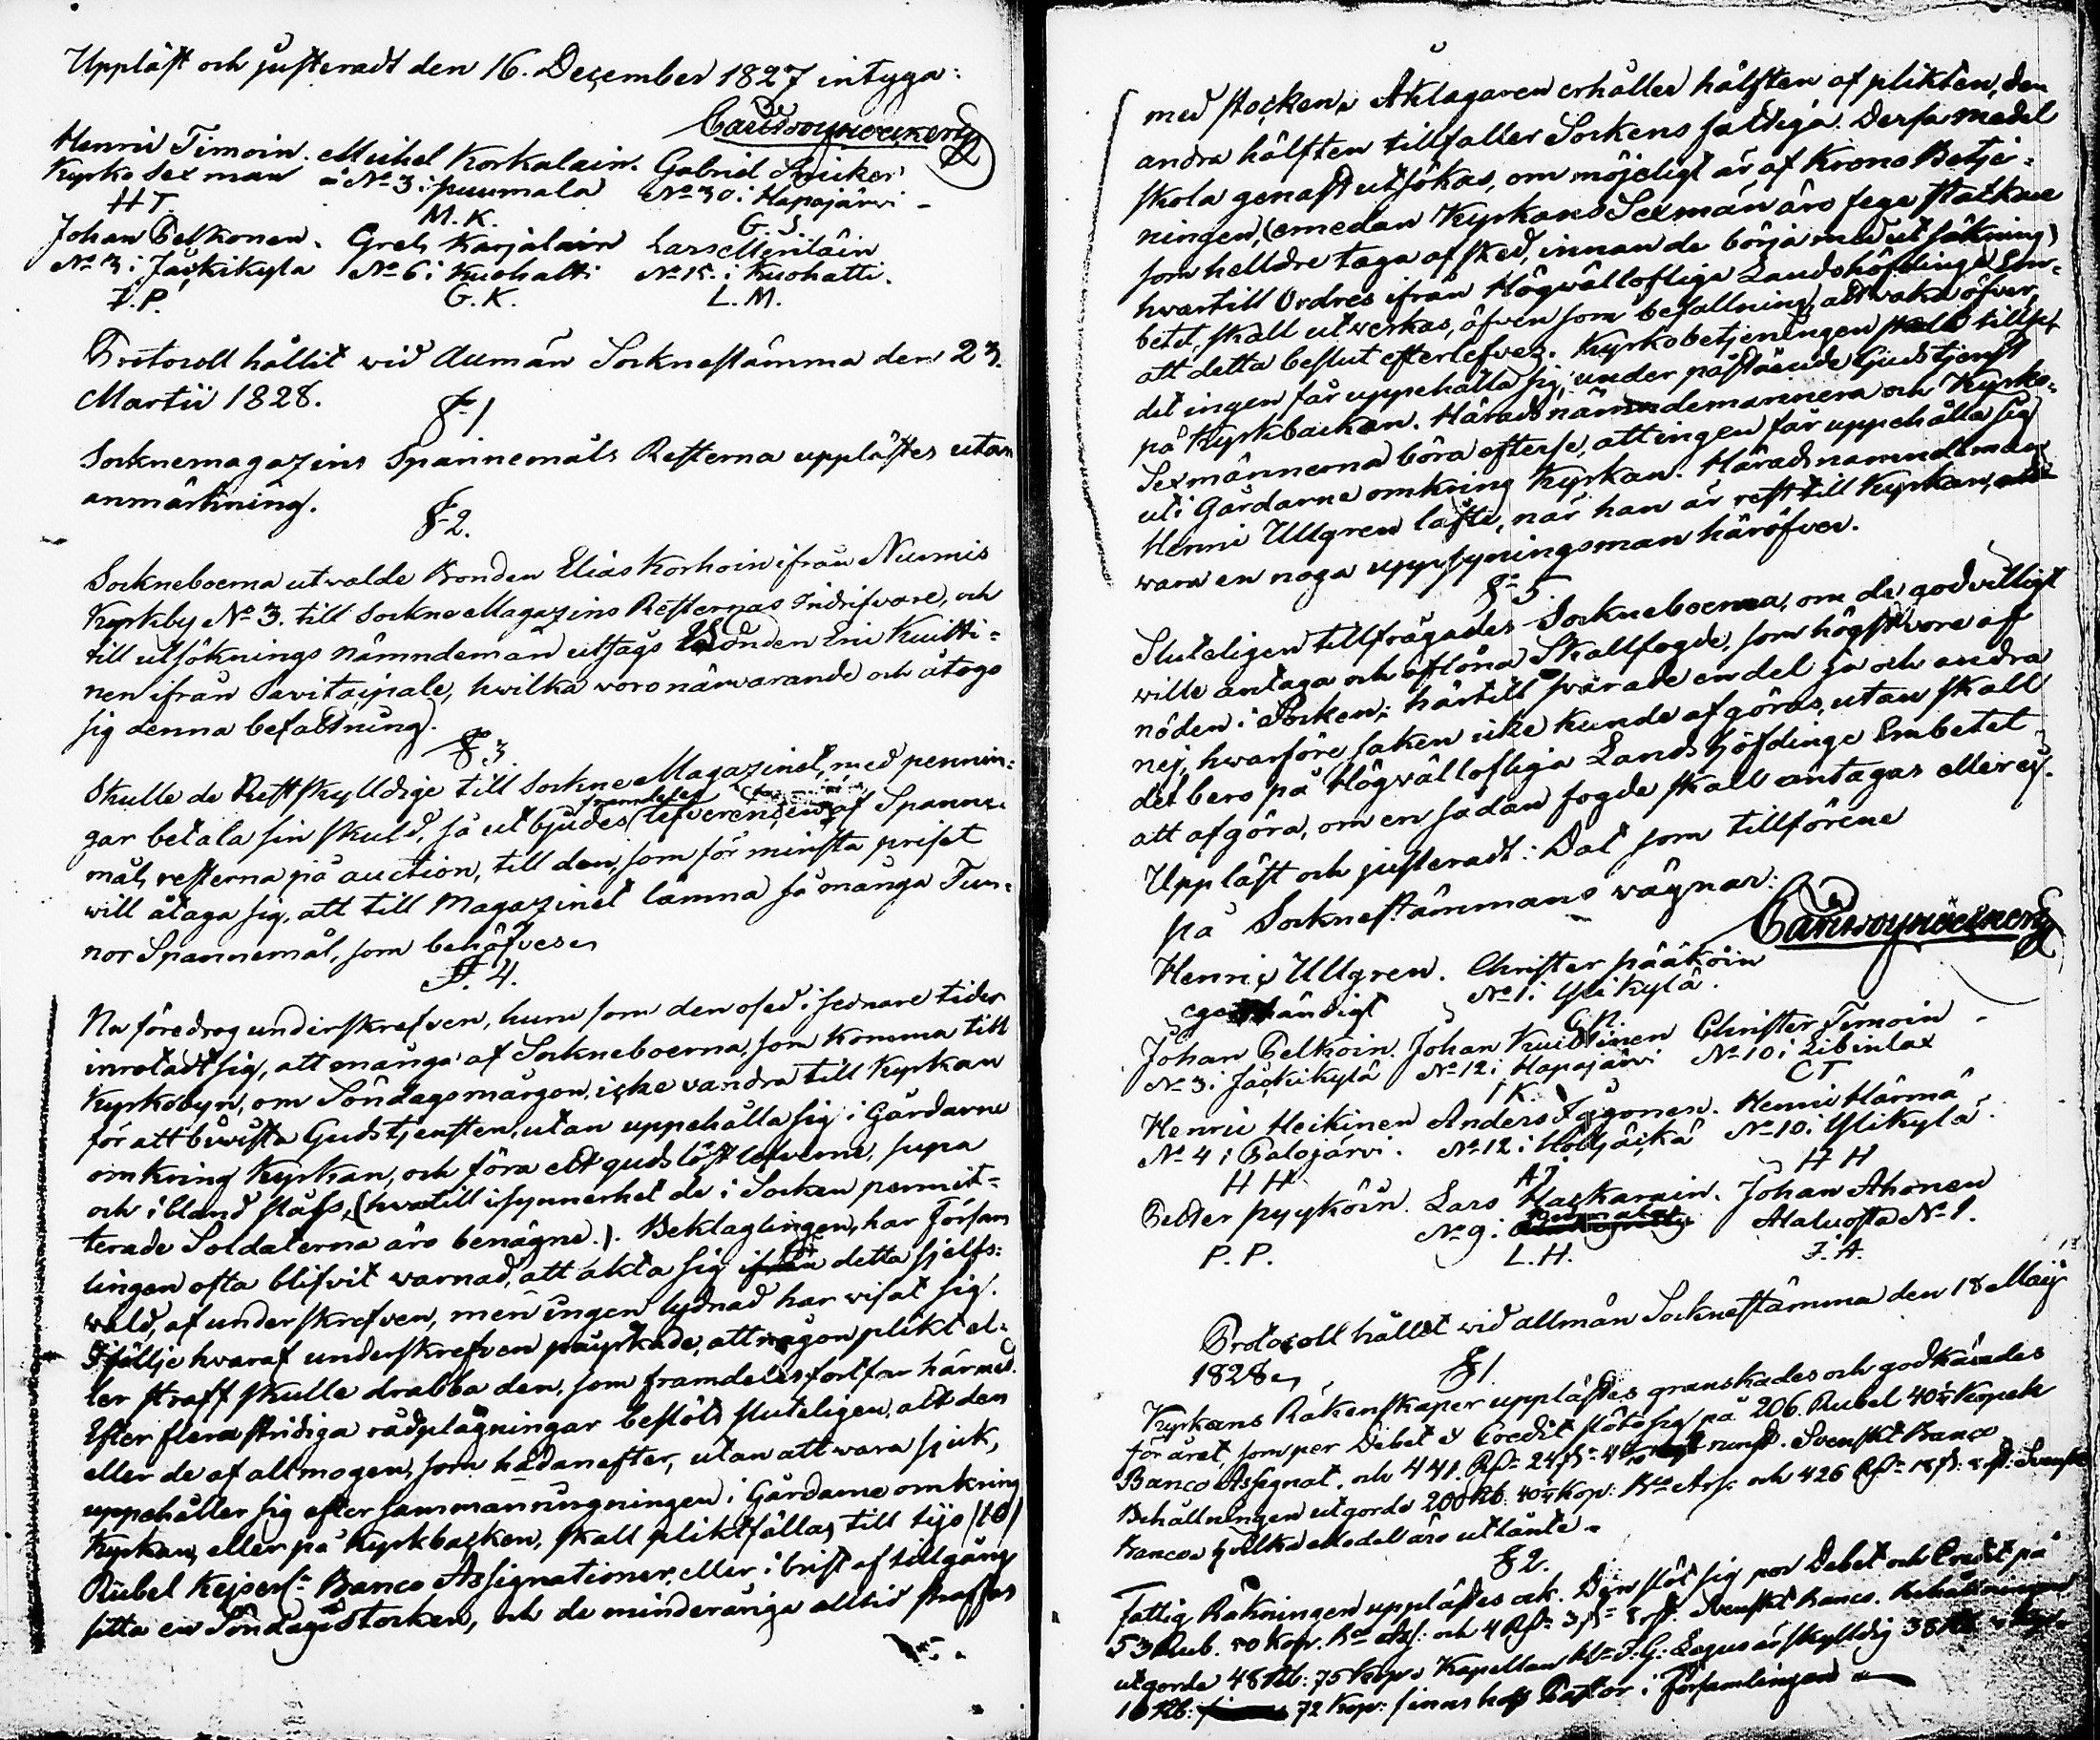 Uppläst och justeradt den 16. December 1827 intyga:
Henric Timoin. Michel Korkalain. Gabriel Snicker
Kyrko Sexman å No 3 i puumala No 30 i Hapajärvi
HT. M.K. G.S.
Johan Pelkonen. Grels Karjalain Lars Meriläin
No 3 i Jäckikyla No 6 i Kuohatti No 15. i Kuohatti.
J.P. G.K. L.M.
Protocoll hållit wid Allmän Socknestämma den 23.
Martii 1828.
§ 1
Socknemagazins Spannemåls Resterna upplästes utan
anmärkning.
§ 2.
Sockneboerna utvalde Bonden Elias Korhoin ifrån Nurmis
Kyrkby No 3. till Sockne Magazins Resternas Indrifvare, och
till utsöknings nämndeman utsågs Bonden Eric Kuitti-
nen ifrån Savitaipale, hwilka voro närwarande och åtogo
sig denna befattning.
§ 3.
Skulle de Restskylldige till Sockne Magazinet, med pennin-
gar betala sin skuld, så utbjudes framdeles lefverencen af Spanne-
måls resterna på auction, till den, som för minsta priset
will åtaga sig, att till Magazinet lämna så många Tun-
nor Spannemål, som behöfves.
§. 4.
Nu föredrog underskrefven, huru som den osed i sednare tider
inrotadt sig, att många af Sockneboerna, som komma till
Kyrkobyn, om Söndagsmorgon, icke vandra till Kyrkan
för att biwista Gudstjensten, utan uppehålla sig i Gårdarne
omkring Kyrkan, och föra ett gudslöst lefverne, supa
och ibland slåss, (hwartill i synnerhet de i Socken permit-
terade Soldaterna äro benägne.). Beklagligen, har Försam
lingen ofta blifvit warnad, att akta sig ifrån detta sjelfs-
wåld, af underskrefven, men ingen lydnad har wisat sig.
I följje hwaraf underskrefven påyrkade, att någon plikt el-
ler straff skulle drabba den, som framdeles fortfar härmed.
Efter flera stridiga rådplägningar beslöts sluteligen, att den
eller de af allmogen, som hädanefter, utan att wara sjuk,
uppehåller sig efter sammanringningen i Gårdarne omkring
Kyrkan, eller på Kyrkbacken, skall pliktfällas till tijo (10)
Rubel Kejserl. Banco Assignationer, eller i brist af tillgång
sitta en Söndag i Stocken, och de minderåriga alltid straffas
med stocken. Åklagaren erhåller hälften af plikten, den
andra hälften tillfaller Sockens fattiga. Dessa medel
skola genast utsökas, om möjeligt är, af Krono Betje-
ningen, (emedan Kyrkans Sexmän äro fege stackare
som helldre taga afsked, innan de börja med utsökning)
hwartill Ordres ifrån Högwällofliga Landshöfdinge Em-
betet, skall utwerkas, äfven som befallning, att waka öfver
att detta beslut efterlefves. Kyrkobetjeningen skall tillse,
det ingen får uppehålla sig, under påstående Gudstjenst
på Kyrkbackan. Häradsnämndemännerna och Kyrko-
Sexmännerna böra efterse, att ingen får uppehålla sig
uti Gårdarne omkring Kyrkan. Häradsnämndeman
Henric Ullgren låfte, när han är rest till Kyrkan,
wara en noga uppsyningsman häröfver.
§ 5.
Sluteligen tillfrågades Sockneboerna, om de godvilligt
wille antaga och aflöna Skallfogde, som högst vore af
nöden i Socken; härtill svarade en del ja och andra
nej, hwarföre saken icke kunde afgöras, utan skall
det bero på Högvällofliga Lands Höfdinge Embetet
att afgöra, om en sådan fogde skall antagas eller ej.
Uppläst och justeradt: Dat som tillförene
på Socknestämmans vägnar:
Henric Ullgren. Christer pääköin
egenhändigt No 1 i Ylikylä.
Johan Pelkoin. Johan Kuittinen Christer Timoin
No 3 i Jäckikylä No 12 i Hapajärvi No 10 i Lipinlax
I K. CT
Henric Heikinen Anders Toyonen. Henric Härmä
No 4 i Palojärvi. No 12 i Höljäckä No 10. i Ylikylä.
H H AT. H H
Petter pyyköin. Lars Haskarain. Johan Ahonen
No 9 i Maluosta No 1.
P. P. L. H. J. A.
Protocoll hållit wid allmän Socknestämma den 18 Maij
1828.
§ 1.
Kyrkans Räkenskaper upplästes granskades och godkändes
för året, som per Debet & Credit slöto sig på 206. Rubel 40 1/4 Kopek
Banco Assignat. och 441. Rd. 24 s. runst. Svenskt Banco
Behållningen utgorde 200 Rb. 40 1/4 Kop: Bco Ass: och 426 Rd. Svenskt
Banco. hvilka medel äro utlånte.
§ 2.
Fattig Räkningen upplästes ock. Den slöt sig per Debet och Credit på
53 Rub. 50 Kop. Bco Ass: och 4 Rd. 3 s. 8 rst. Svenskt Banco. Behållningen
utgorde 48 Rb: 75 Kop. Kapellan H. J. G: Lagus är skylldig 38 Rb
10 Rb: 72 Kop: finnas hos Pastor i Församlingen